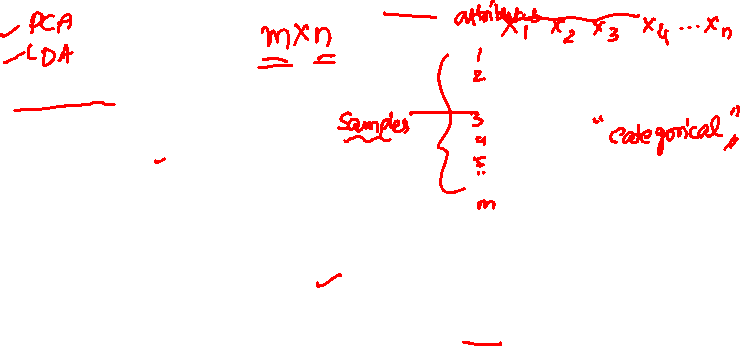 PCA
LDA
m×n
attributes
x1 x2 x3 x4 ... xn
1
2
Samples 3
4
5
:
m
"categorical"